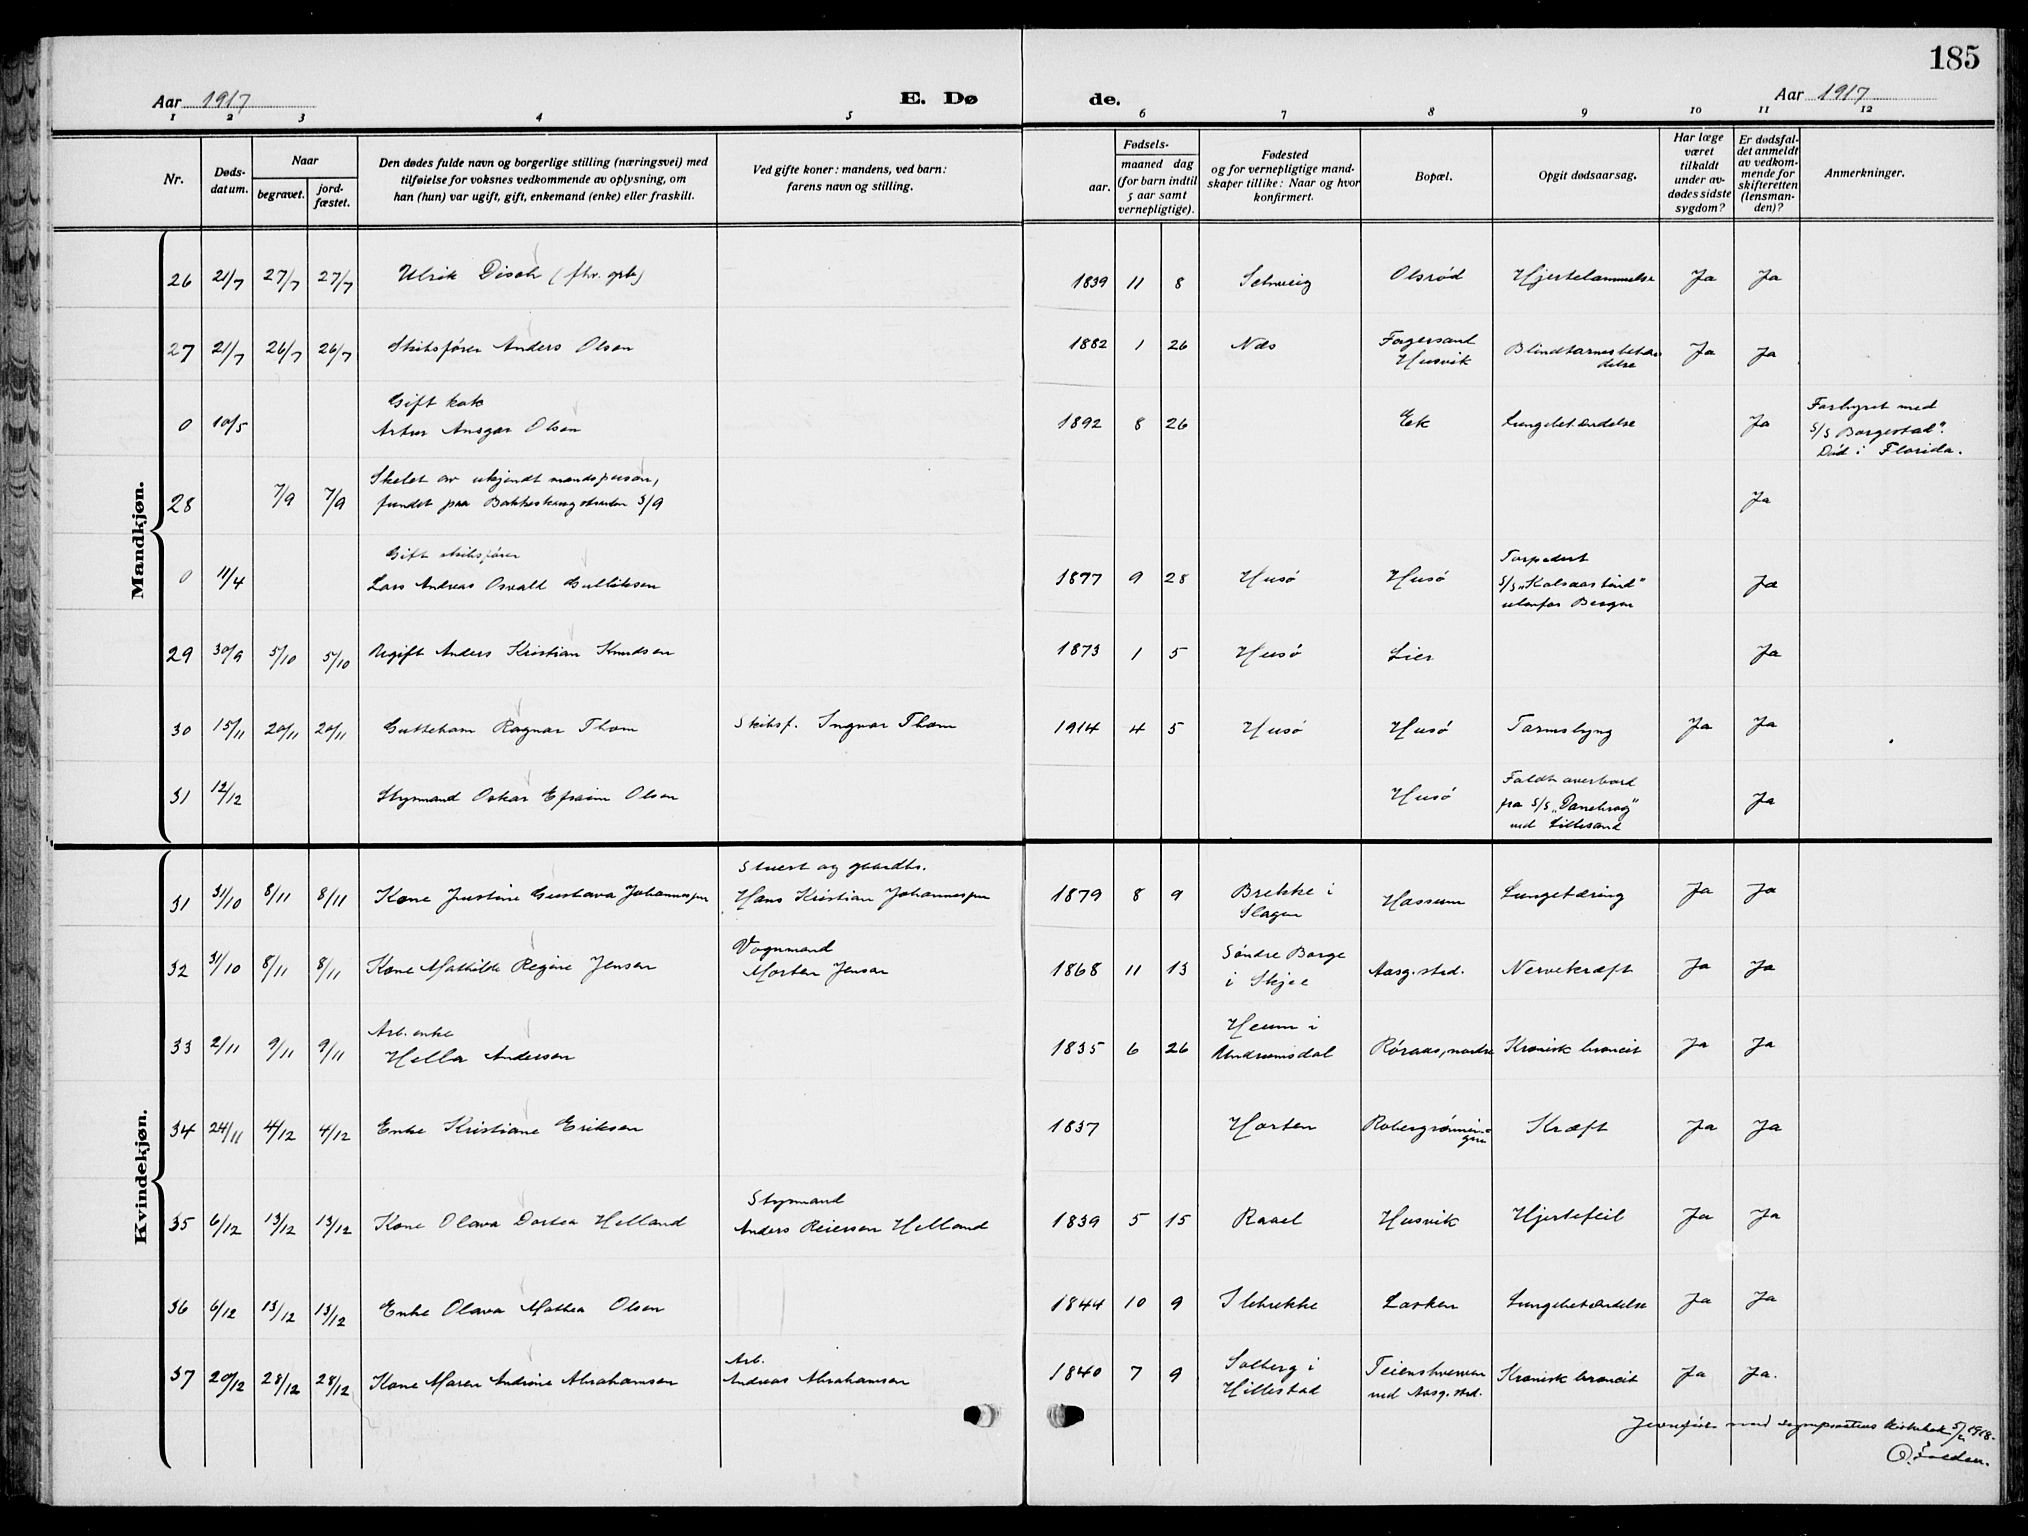 185
Aar 1917
E. Dø
de.
Aar 1917
1 2 3 4 5 6 7 8 9 10 11 12
Nr.
Døds-
datum.
Naar
begravet.
jord-
fæstet.
Den dødes fulde navn og borgerlige stilling (næringsvei) med
tilføielse for voksnes vedkommende av oplysning, om
han (hun) var ugift, gift, enkemand (enke) eller fraskilt.
Ved gifte koner: mandens, ved barn:
farens navn og stilling.
Fødsels-
aar.
maaned dag
(for barn indtil
5 aar samt
vernepligtige).
Fødested
og for vernepligtige mand-
skaper tillike: Naar og hvor
konfirmert.
Bopæl.
Opgit dødsaarsag.
Har læge
været
tilkaldt
under av-
dødes sidste
sygdom?
Er dødsfal-
det anmeldt
av vedkom-
mende for
skifteretten
(lensman-
den)?
Anmerkninger.
Mandkjøn.
26 21/7 27/7 27/7 Ulrik Disch 1839 11 8 Schweig Olsrød Hjertelammelse Ja Ja
27 21/7 26/7 26/7 Skibsfører Anders Olsen 1882 1 26 Næs Fagersand
Husvik Blindtarmsbetæn-
delse Ja Ja
0 10/5 Gift kok
Artur Ansgar Olsen 1892 8 26 Ek Lungebetændelse Ja Forhyret med
S/S Borgestad".
Død i Florida.
28 7/9 7/9 Skelet av ukjendt mandsperson,
fundet paa 3/9 Ja
0 11/4 Gift skibsfører
Lars Andreas Osvald Gulliksen 1877 9 28 Husø Husø Torpedert
S/S „Kolsaastind"
utenfor Bergen Ja
29 30/9 5/10 5/10 Ugift Anders Kristian Knudsen 1873 1 5 Husø Lier Ja
30 15/11 20/11 20/11 Guttebarn Ragnar Thom Skibsf. Ingvar Thom 1914 4 5 Husø Husø Tarmslyng Ja Ja
31 12/12 Styrmand Oskar Efraim Olsen Husø Faldt overbord
fra S/S „Danebrog"
ved Lillesand Ja
Kvindekjøn.
31 31/10 8/11 8/11 Kone Justine Gustava Johannessen Stuert og gaardbr.
Hans Kristian Johannessen 1879 8 9 Brekke i
Slagen Hassum Lungetæring Ja Ja
32 31/10 8/11 8/11 Kone Mathilde Regine Jensen Vognmand
Morten Jensen 1868 11 13 Søndre Borge
i Skjee Aasg.strd. Nervekræft Ja Ja
33 2/11 9/11 9/11 Arb. enke
Hella Andersen 1835 6 26 Heum i
Undrumsdal Røraas, nordre Kronisk broncit Ja Ja
34 24/11 4/12 4/12 Enke Kristiane Eriksen 1837 Horten Kræft Ja Ja
35 6/12 13/12 13/12 Kone Olava Dortea Helland Styrmand
Anders Reiersen Helland 1839 5 15 Raael Husvik Hjertefeil Ja Ja
36 6/12 13/12 13/12 Enke Olava Mathea Olsen 1844 10 9 Ilebrekke Lasken Lungebetændelse Ja Ja
37 20/12 28/12 28/12 Kone Maren Andrine Abrahamsen Arb.
Andreas Abrahamsen 1840 7 9 Solberg i
Hillestad ved Aasg.strd. Kronisk broncit Ja Ja.
1918.